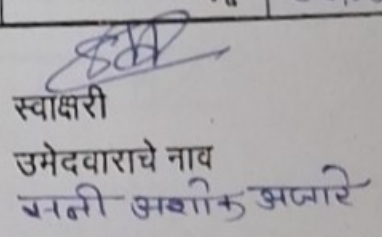 स्वाक्षरी
उमेदवाराचे नाव
सनी अशोक अजारे